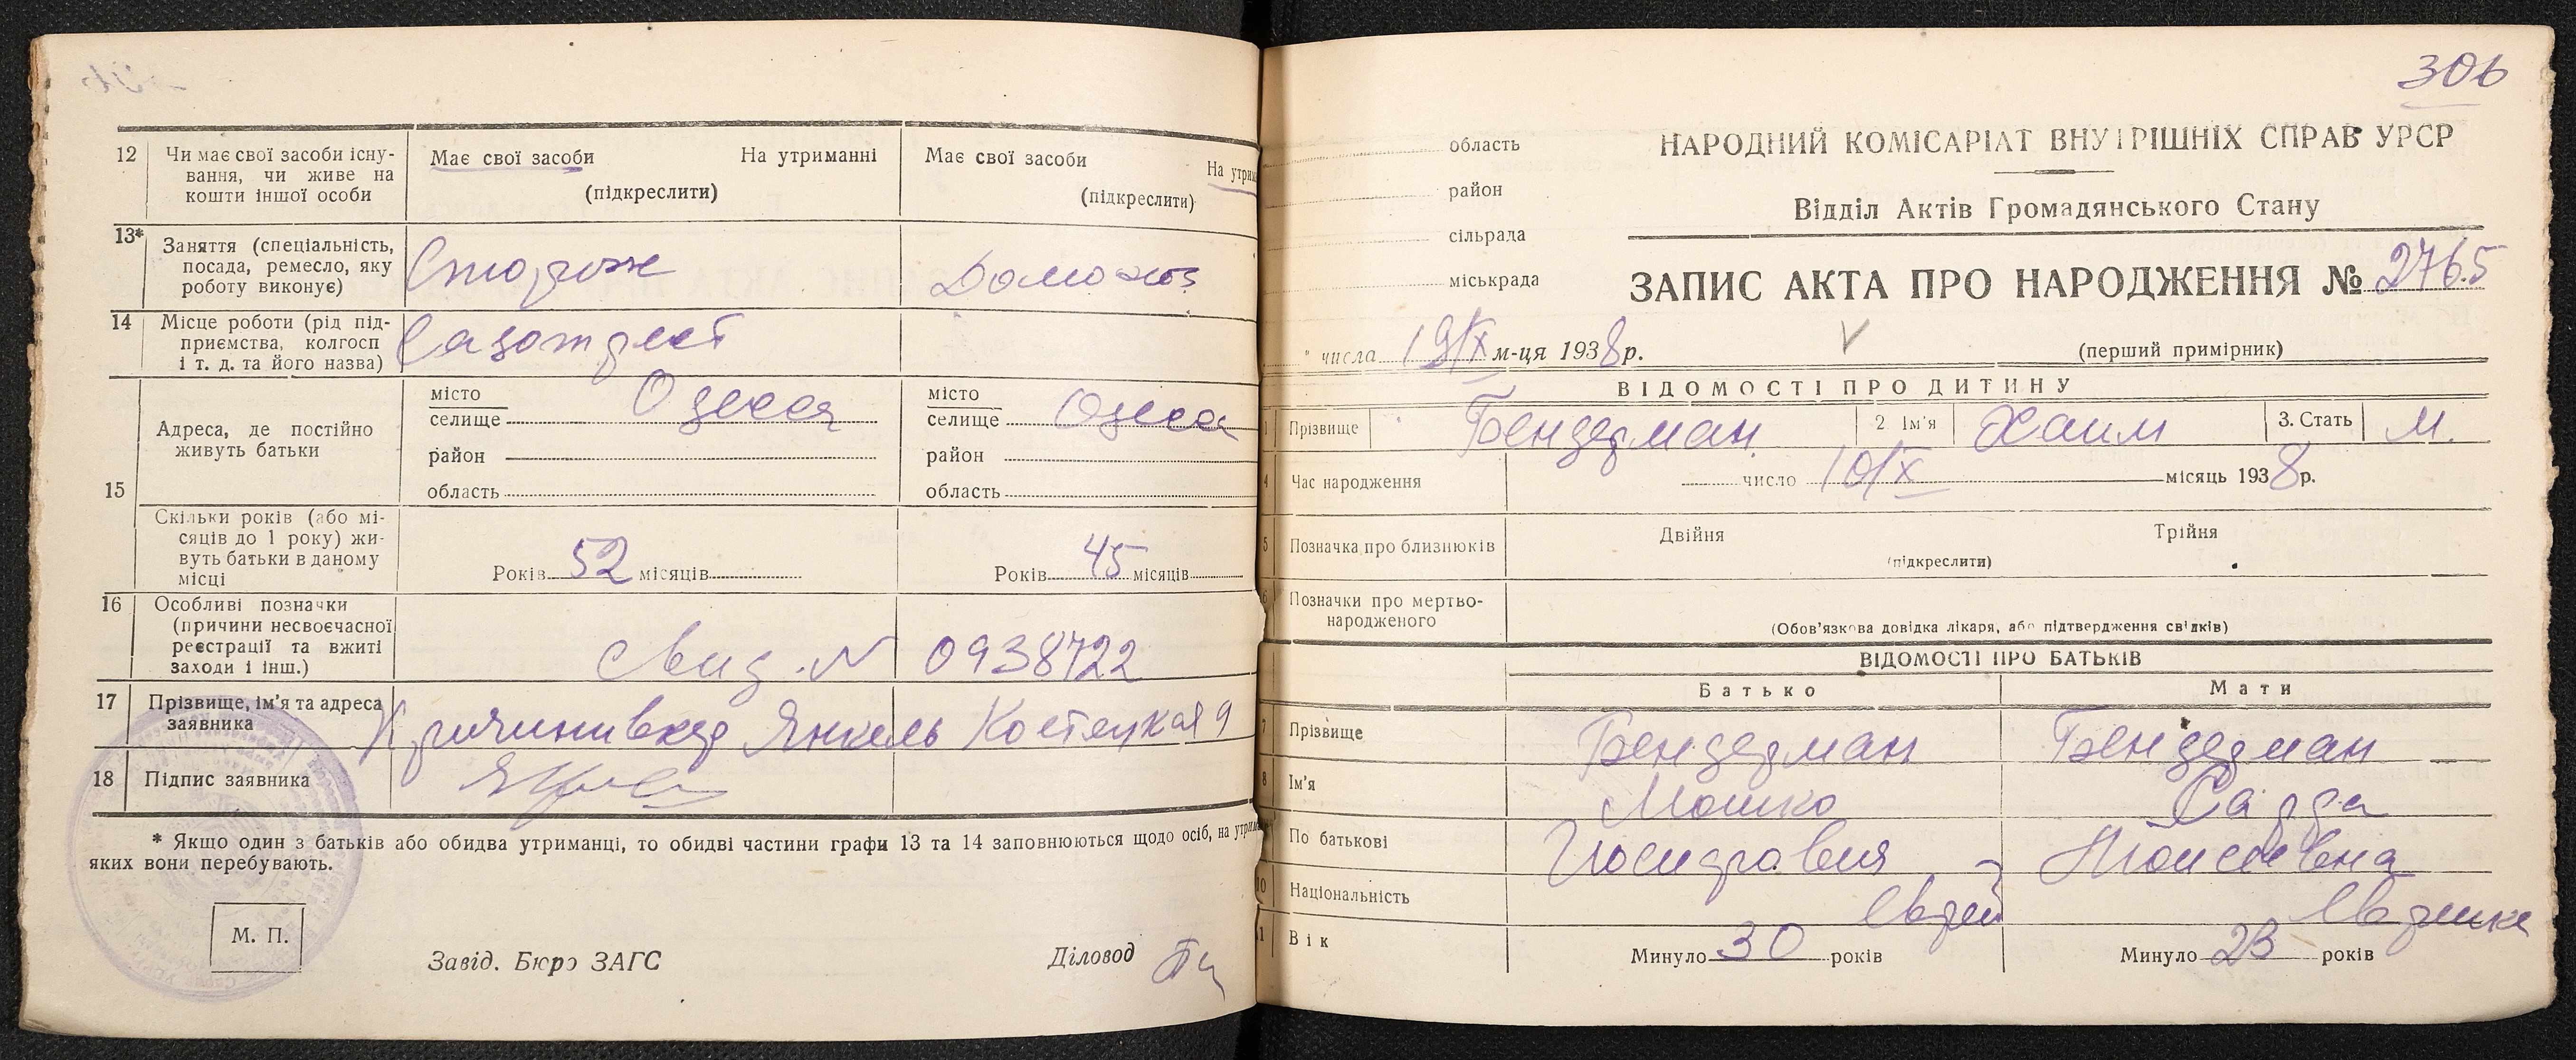 12 Чи має свої засоби існу-
вання, чи живе на
кошти іншої особи
Має свої засоби На утриманні
(підкреслити)
Має свої засоби На утрим
(підкреслити)
13* Заняття (спеціальність,
посада, ремесло, яку
роботу виконує)
Сторож
Домохоз
14 Місце роботи (рід під-
приємства, колгосп
і т. д. та його назва)
15 Адреса, де постійно
живуть батьки
місто
селище Одесса
район
область
місто
селище Одесса
район
область
Скільки років (або мі-
сяців до 1 року) жи-
вуть батьки в даному
місці
Років 52 місяців
Років 45 місяців
16 Особливі позначки
(причини несвоєчасної
реєстрації та вжиті
заходи і інш.)
Свид. N 0938722
17 Прізвище, ім'я та адреса
заявника
Янкель Костецкая 9
18 Підпис заявника
* Якщо один з батьків або обидва утриманці, то обидві частини графи 13 та 14 заповнюються щодо осіб, на утрим
яких вони перебувають.
М. П.
Завід. Бюро ЗАГС Діловод
306
область
район
сільрада
міськрада
НАРОДНИЙ КОМІСАРІАТ ВНУТРІШНІХ СПРАВ УРСР
Відділ Актів Громадянського Стану
ЗАПИС АКТА ПРО НАРОДЖЕННЯ № 2765
" числа 19/IX м-ця 1938 р.
(перший примірник)
ВІДОМОСТІ ПРО ДИТИНУ
1 Прізвище Бендерман 2 Ім'я Хаим 3. Стать М.
4 Час народження число 10/IX місяць 1938 р.
5 Позначка про близнюків Двійня Трійня
(підкреслити)
6 Позначки про мертво-
народженого
(Обов'язкова довідка лікаря, або підтвердження свідків)
ВІДОМОСТІ ПРО БАТЬКІВ
Батько Мати
7 Прізвище Бендерман Бендерман
8 Ім'я Мошко Сарра
9 По батькові Мойсеевна
10 Національність Еврей Еврейка
11 Вік Минуло 30 років Минуло 23 років